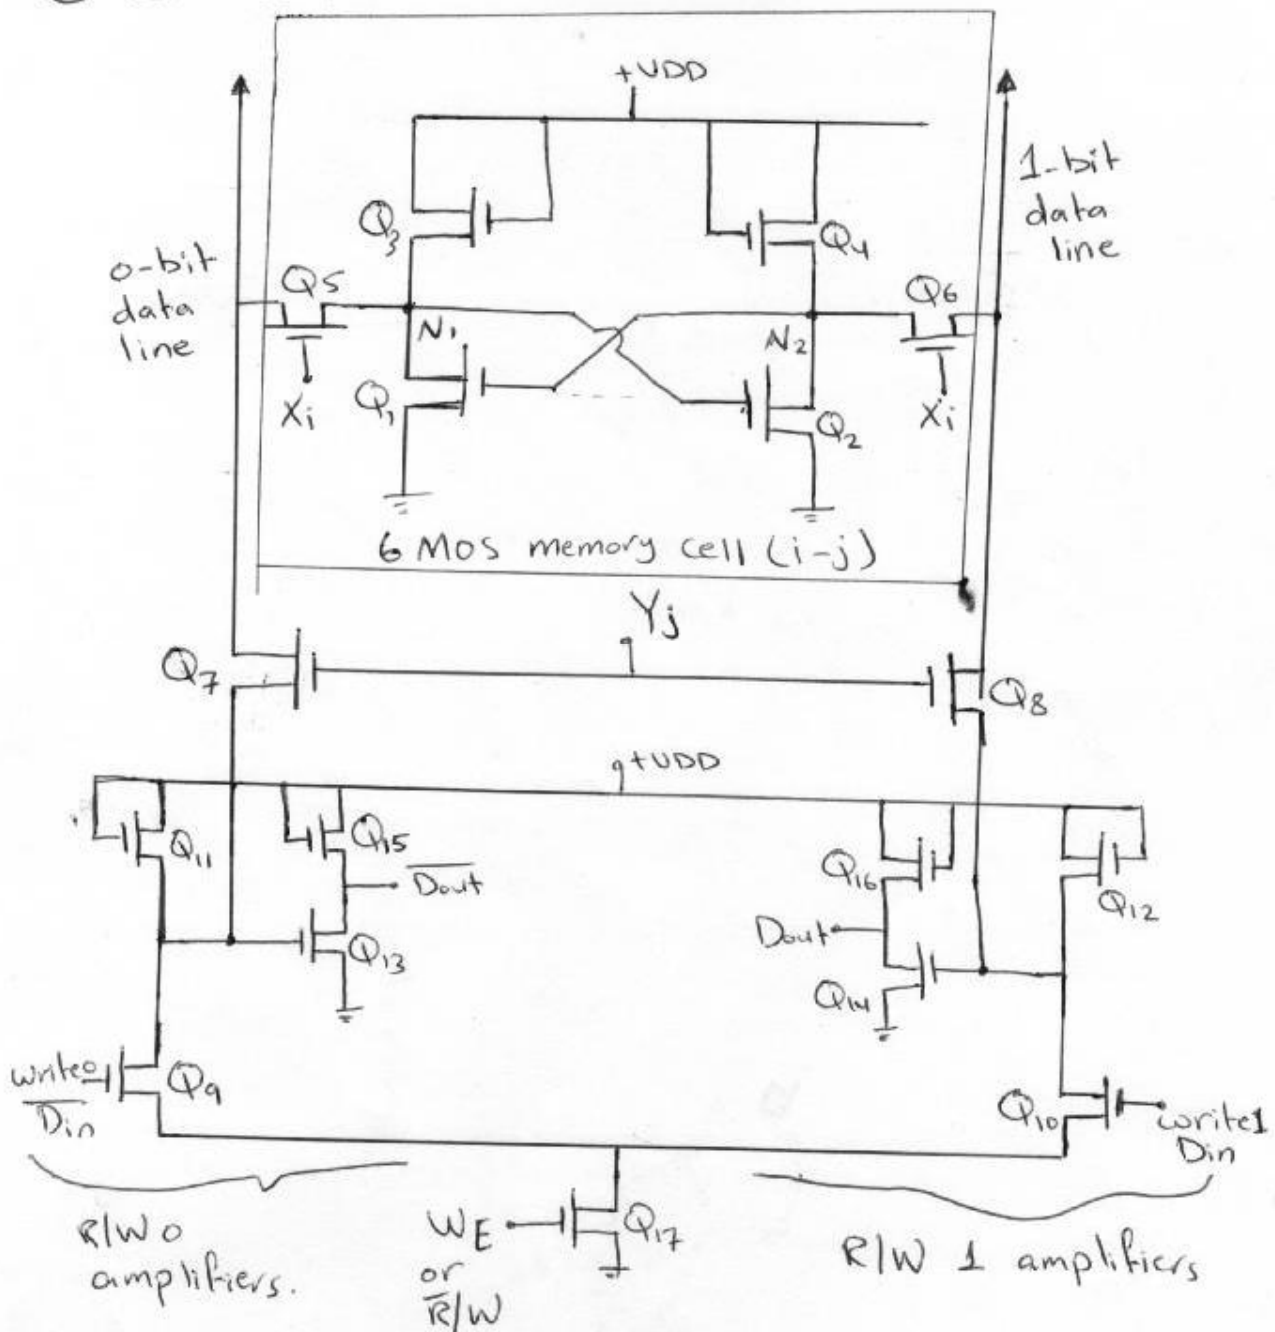 +VDD
1-bit
data
line
0-bit
data
line
Q3
Q4
Q5
Q6
N1
N2
Xi
Q1
Q2
Xi
6 MOS memory cell (i-j)
Yj
Q7
Q8
+VDD
Q11
Q15
Dout
Q16
Q12
Dout
Q13
Q14
write0
Din
Q9
Q10
write1
Din
R/W 0
amplifiers.
WE
or
R/W
Q17
R/W 1 amplifiers